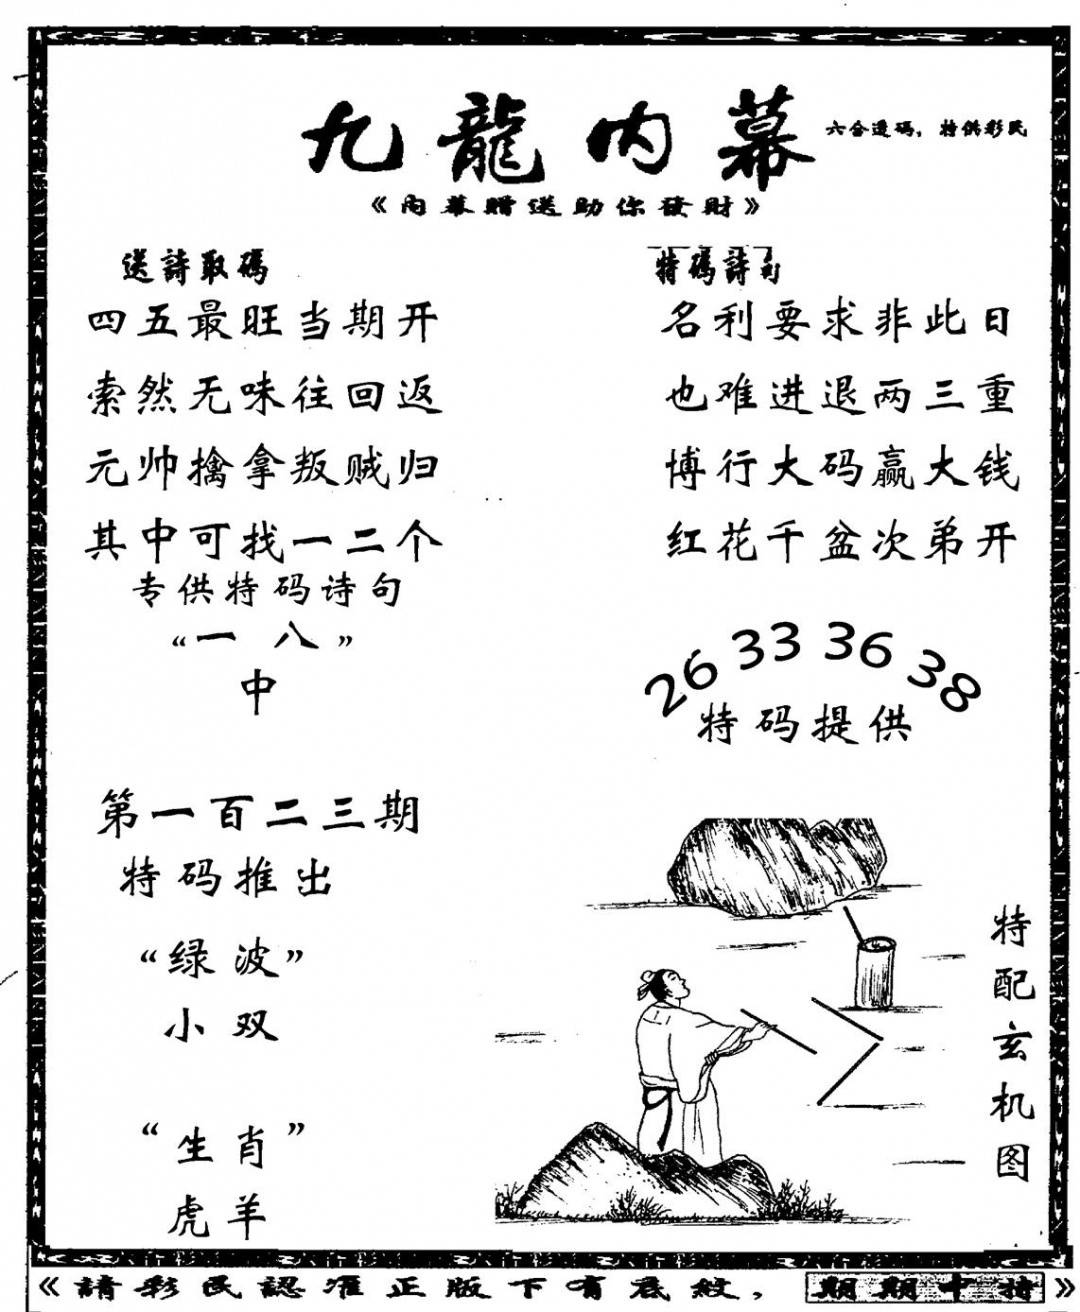 九龍内幕
六合透碼，特供彩民
《内幕贈送助你發財》
送詩取碼
四五最旺当期开
索然无味往回返
元帅擒拿叛贼归
其中可找一二个
专供特码诗句
“一八”
中
特碼詩句
名利要求非此日
也难进退两三重
博行大码赢大钱
红花千盆次弟开
26 33 36 38
特码提供
第一百二三期
特码推出
“绿波”
小双
“生肖”
虎羊
特配玄机图
《請彩民認准正版下有底紋，期期中特》